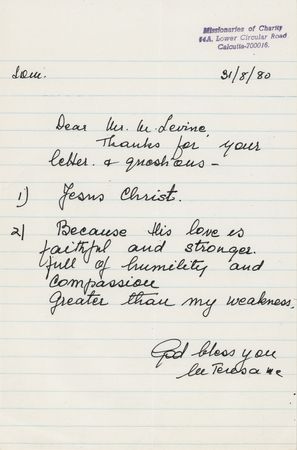 Missionaries of Charity
54A, Lower Circular Road
Calcutta-700016.
LDM. 31/8/80
Dear Mr. M. Levine,
Thanks for your
letter. & questions -
1) Jesus Christ.
2) Because His love is
faithful and stronger.
full of humility and
compassion
Greater than my weakness.
God bless you
M Teresa mc